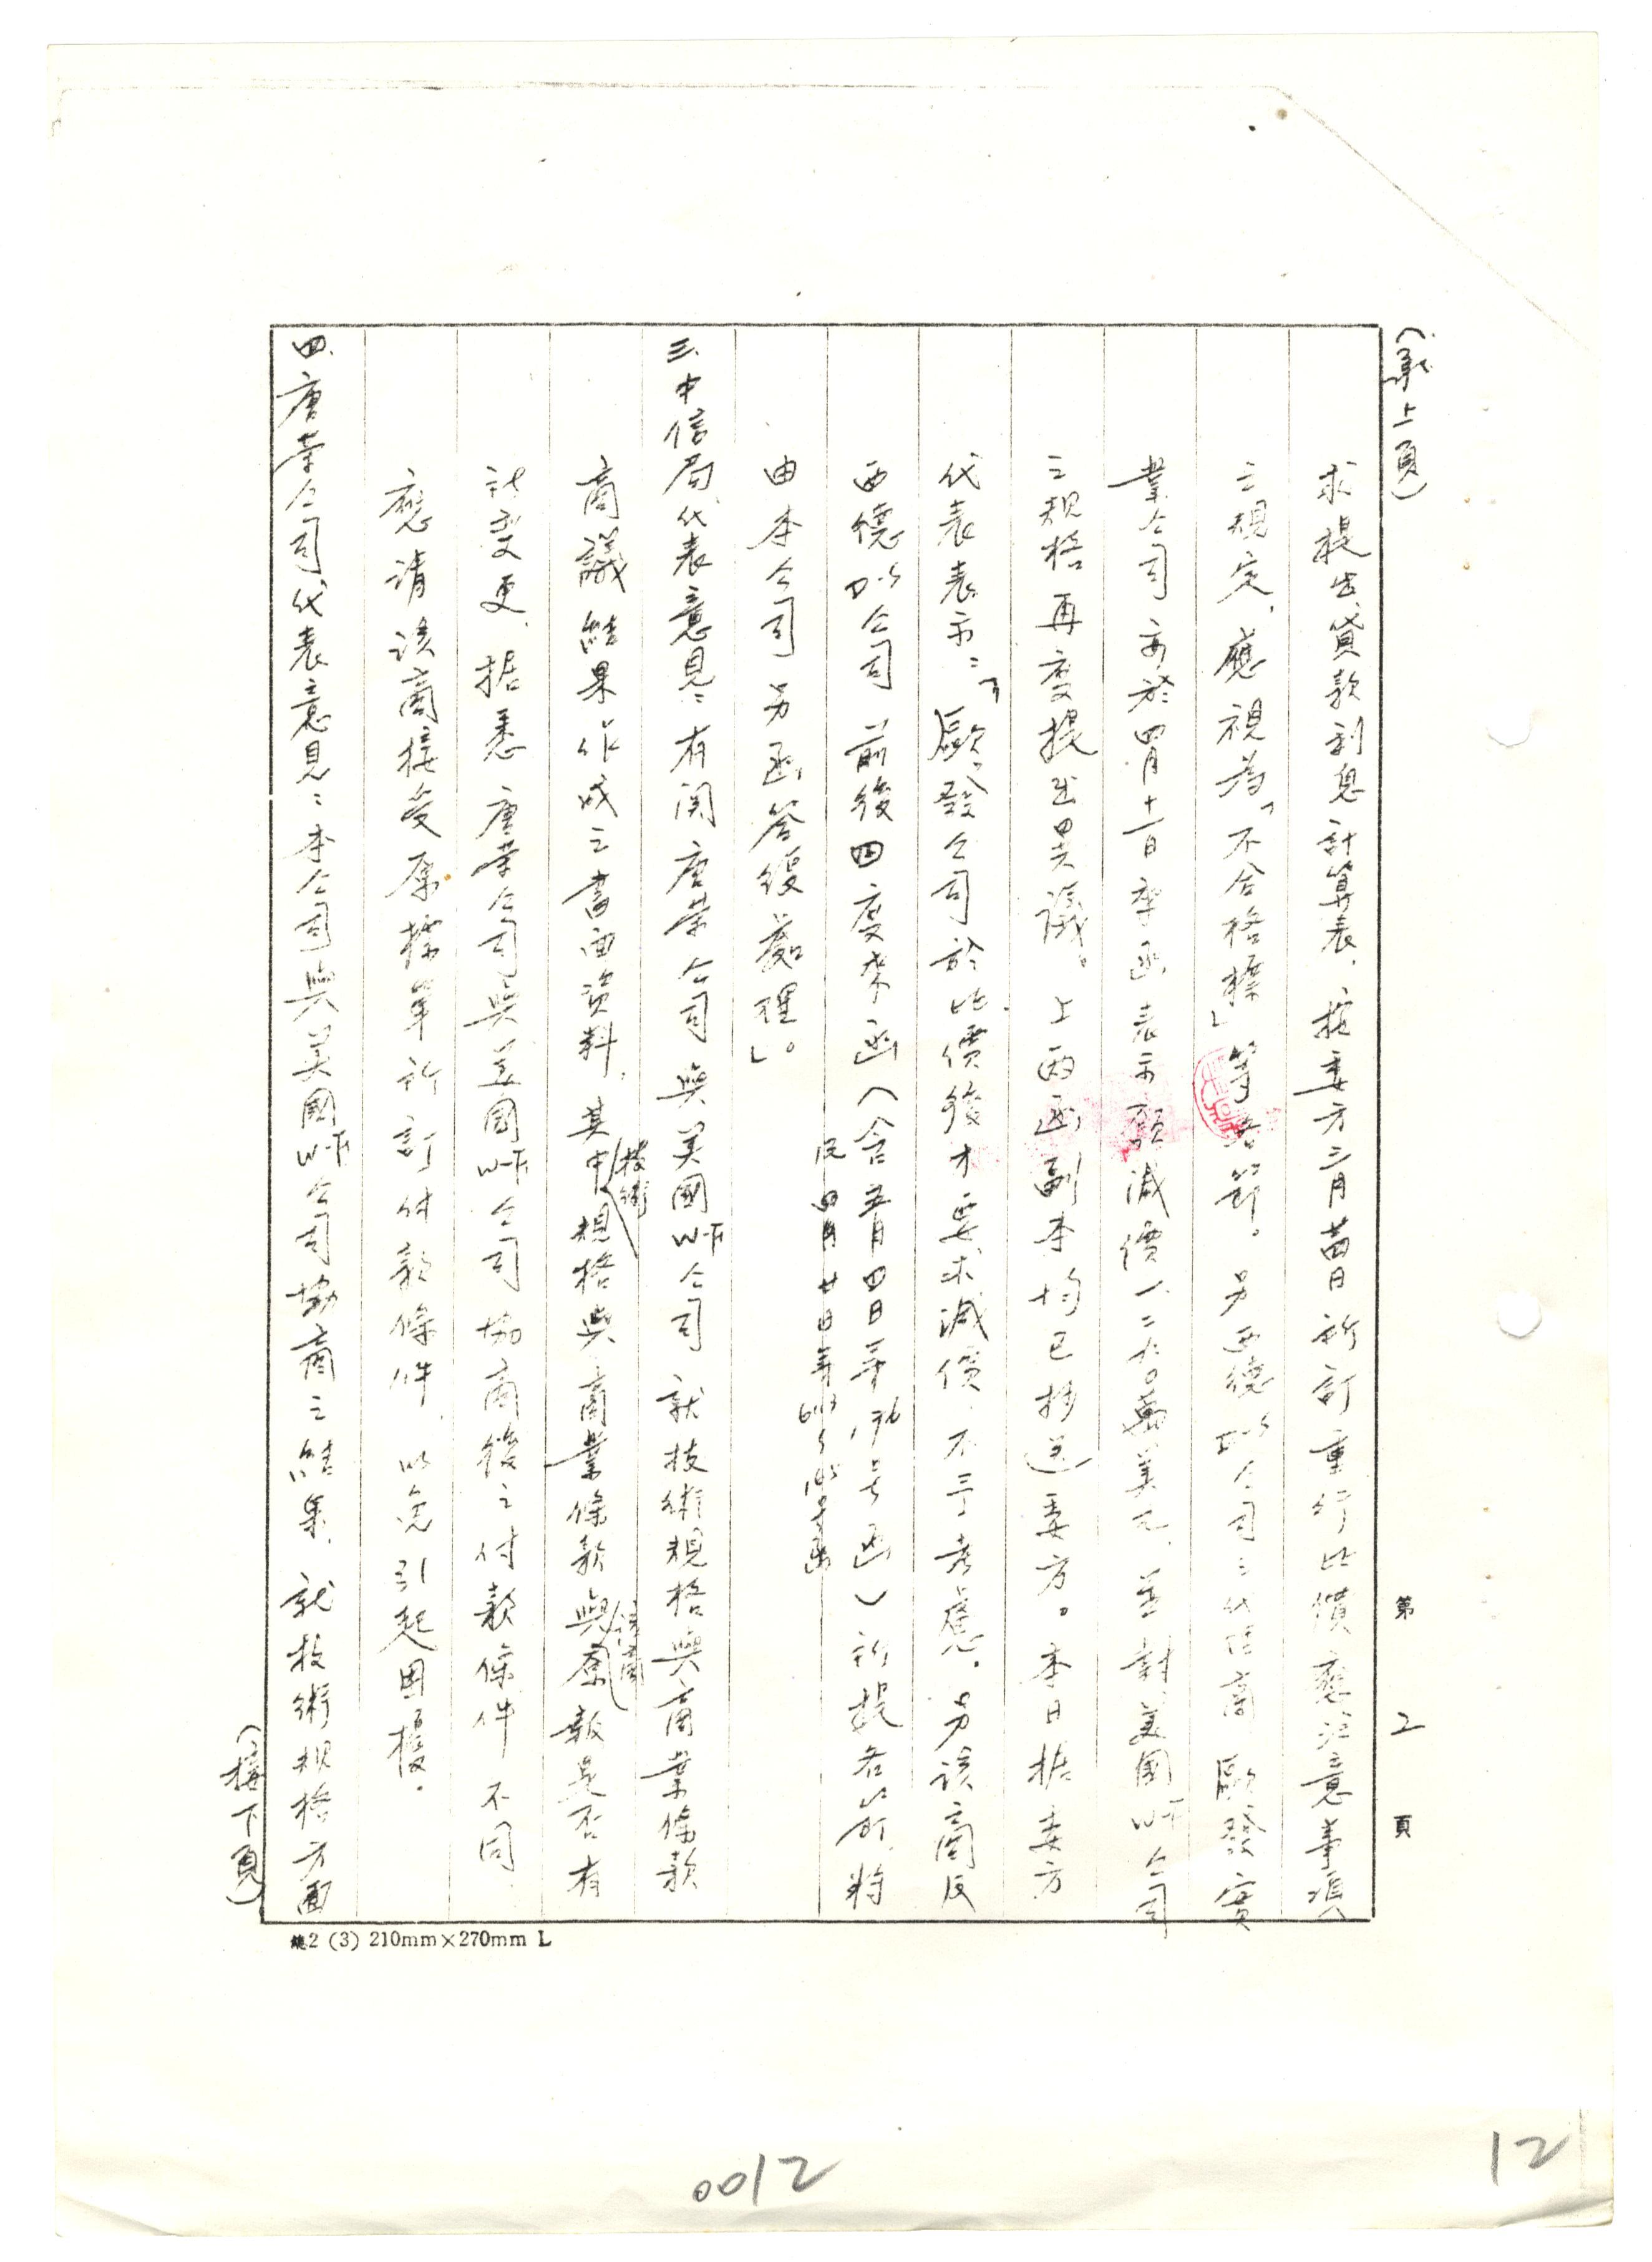 (承上頁)
第 2 頁
求提出貸款利息計算表，按委方三月廿四日所訂重行比價應注意事項
之規定，應視為「不合格標」等各節。另西德公司之代理商歐發實
業公司亦於四月十一日來函表示願減價一二九○萬美元，並對美國WF公司
之規格再度提出異議。上兩函副本均已抄送委方。本日据委方
代表表示：「歐發公司於比價後才要求減價，不予考慮。另該商及
西德公司前後四度來函(含五月四日第176号函)所提各節，將
及四月廿日第
由本公司另函答復處理」。
三、中信局代表意見：有関唐榮公司與美國WF公司就技術規格與商業條款
商議結果作成之書面資料，其中技術規格與商業條款與原報是否有
所變更，据悉唐榮公司與美國WF公司協商後之付款條件不同，
應請該商接受原標單所訂付款條件，以免引起困擾。
四、唐榮公司代表意見：本公司與美國WF公司協商之結果，就技術規格方面
(接下頁)
總2 (3) 210mm×270mm L
0012
12